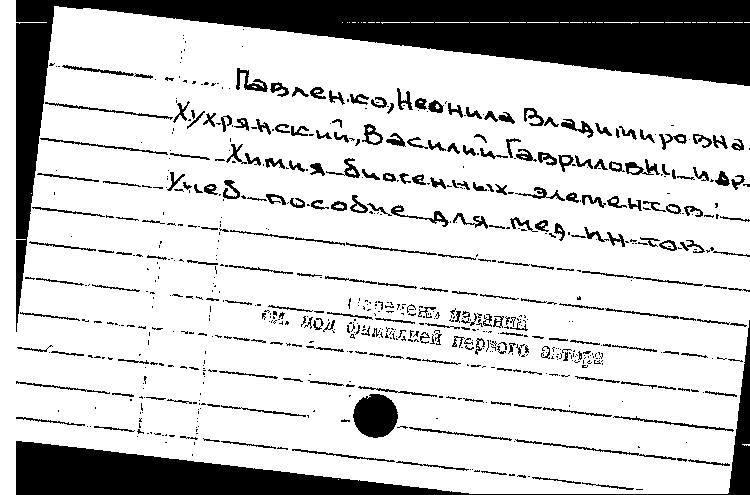 Павленко, Неонила Владимировна.
Хухрянский, Василий Гаврилович и др.
Химия биогенных элементов:
Учеб. пособие для мед. ин-тов.
Перечень изданий
см. под фамилией первого автора